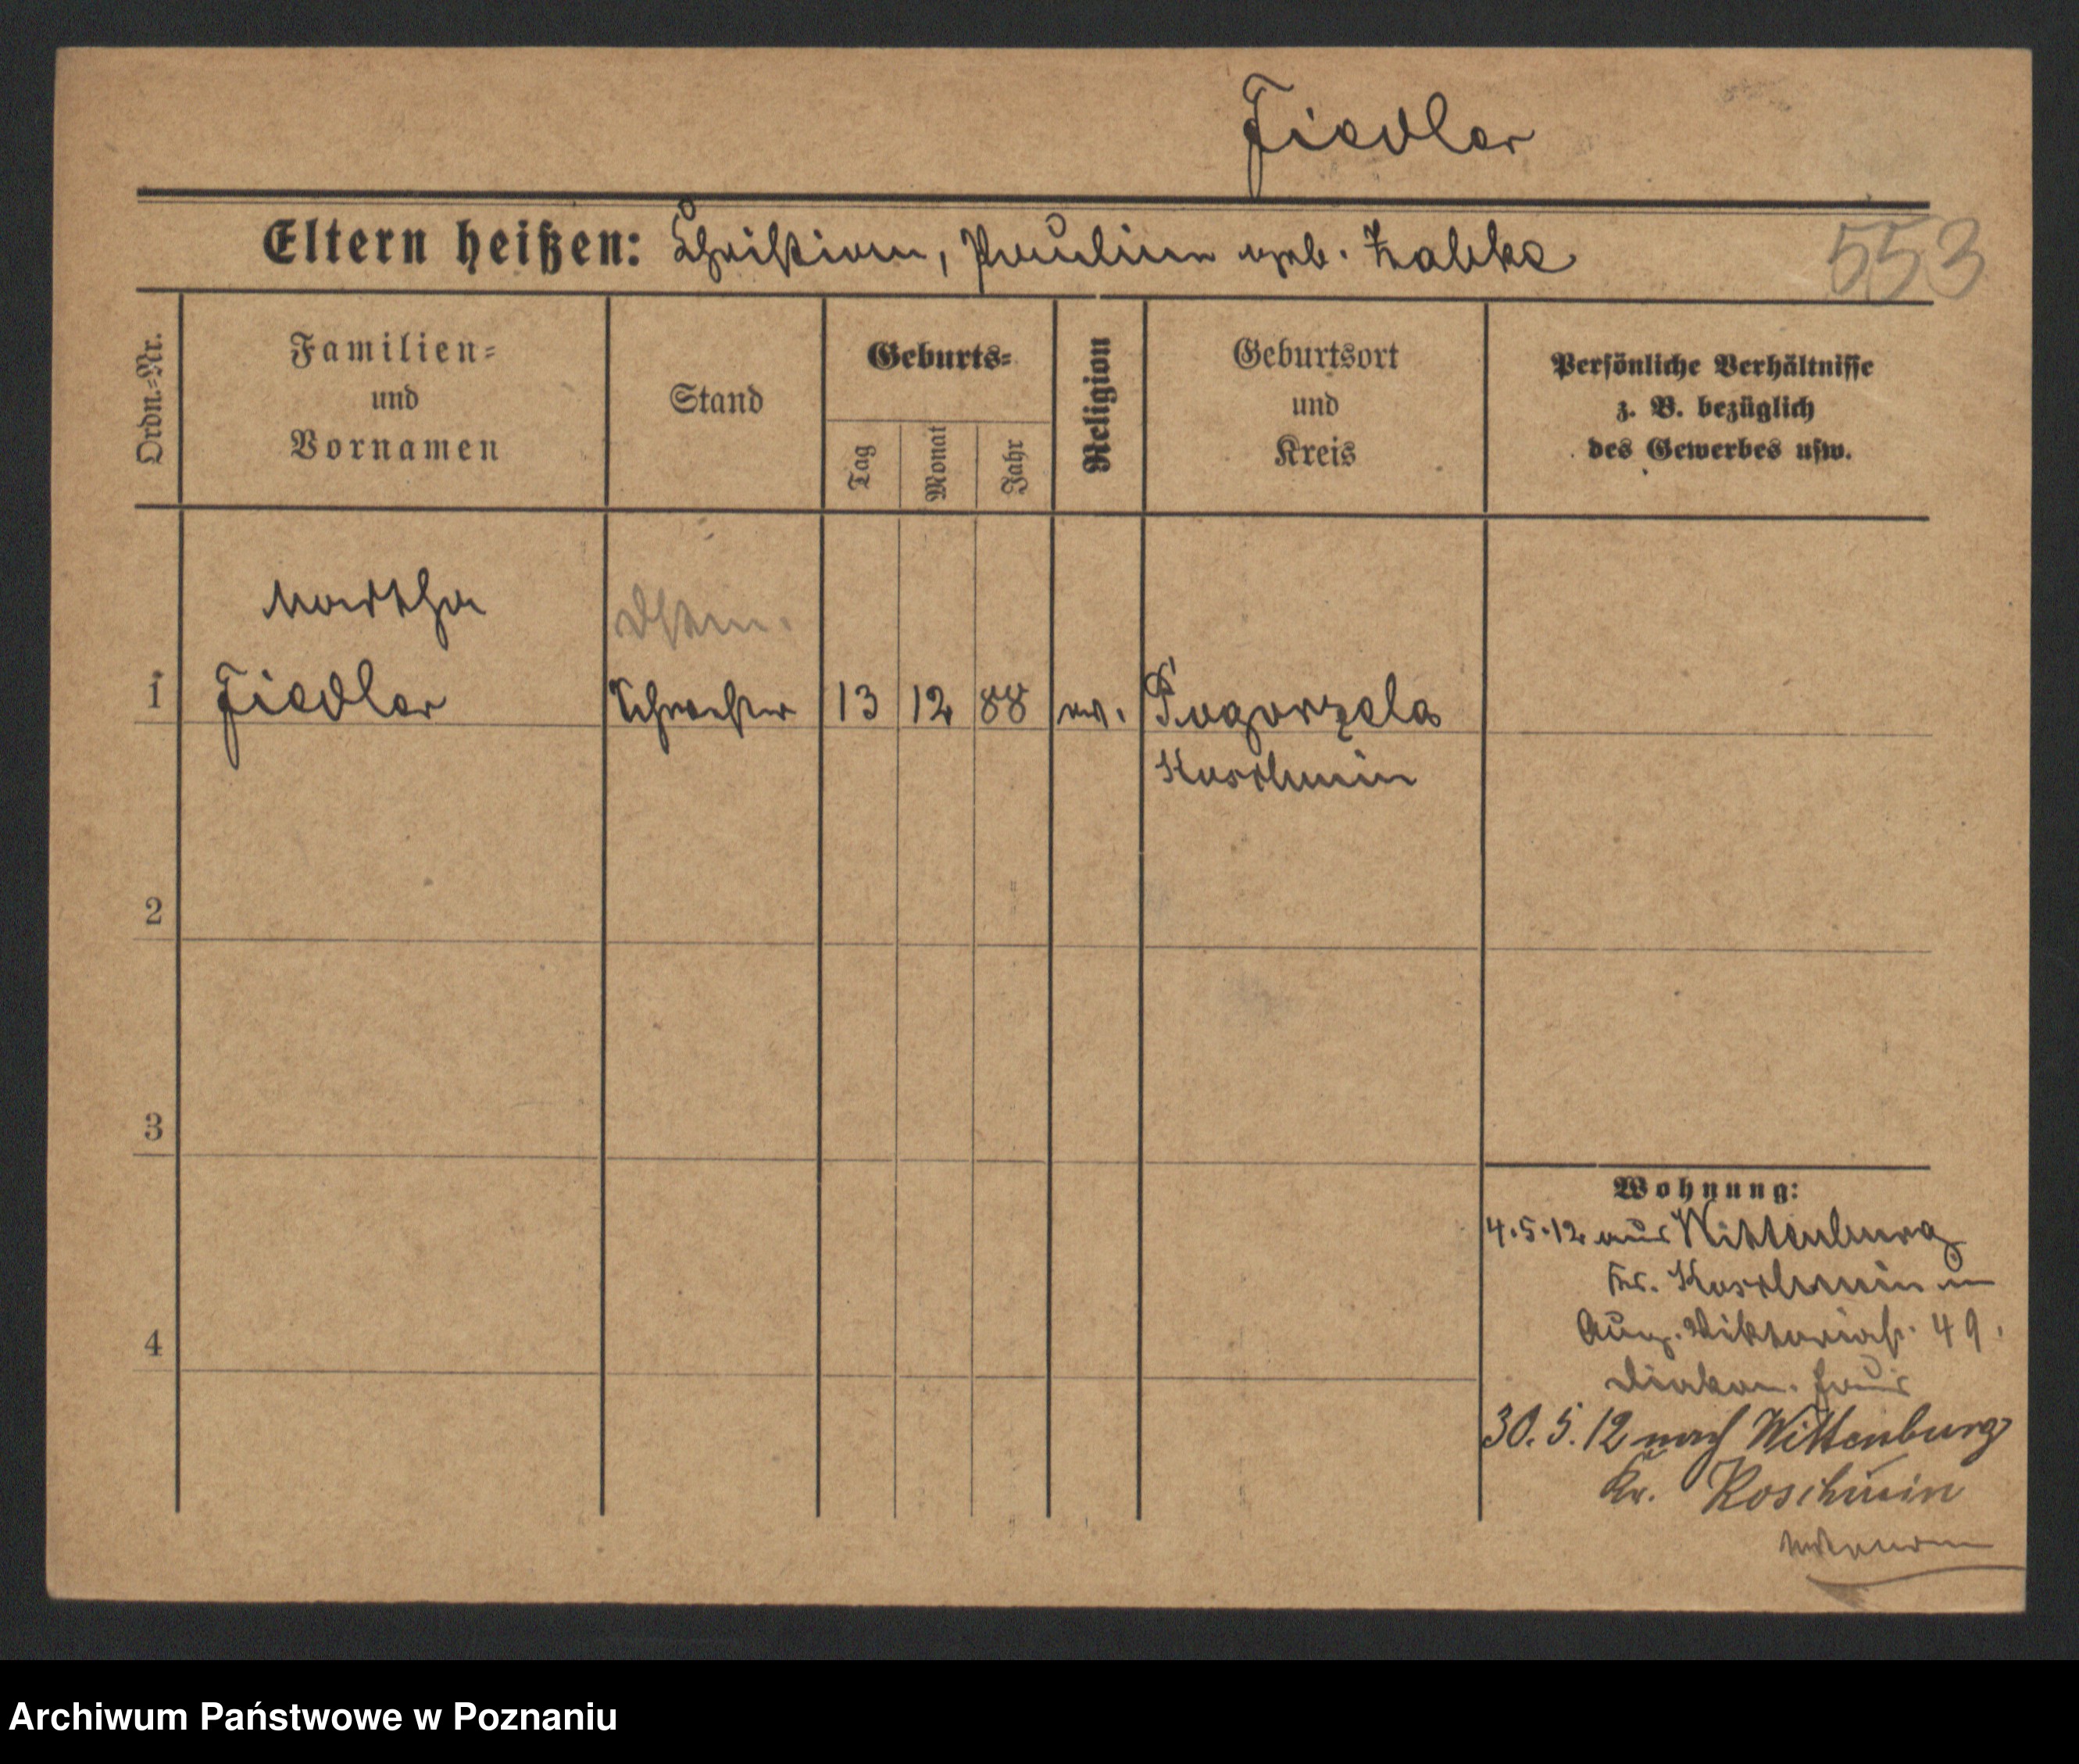 Fiedler
Eltern heißen: Christian, Pauline geb. Zabke
553
Ordn.-Nr.
Familien-
und
Vornamen
Stand
Geburts-
Tag
Monat
Jahr
Religion
Geburtsort
und
Kreis
Persönliche Verhältnisse
z. B. bezüglich
des Gewerbes usw.
Martha
1 Fiedler Schwester 13 12 88 ev. Pogorzela
Koschmin
2
3
4
Wohnung:
4.5.12 aus Wittenburg
Kr. Koschmin in
Aug. Viktoriastr. 49.
Diakon. Haus
30.5.12 nach Wittenburg
Kr. Koschmin
Archiwum Państwowe w Poznaniu